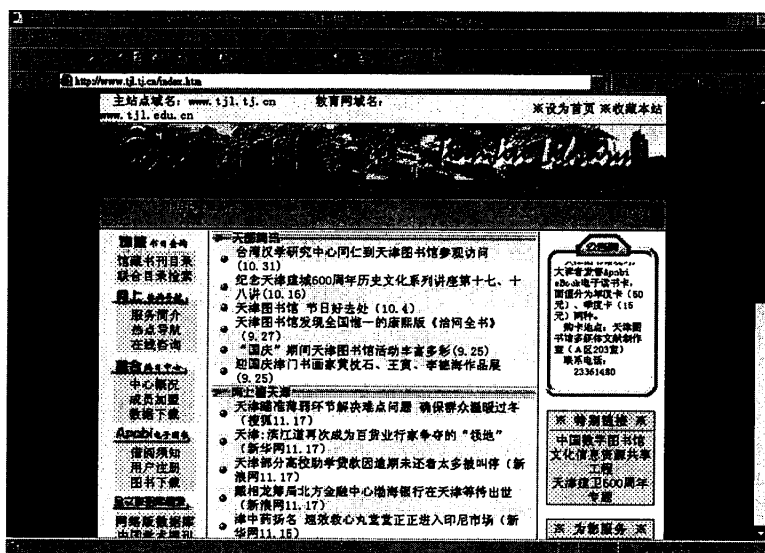 http://www.tjl.tj.cn/index.htm
主站点域名：www.tjl.tj.cn 教育网域名：
www.tjl.edu.cn
※设为首页 ※收藏本站
Tianjin Library
馆藏书目查询
馆藏书刊目录
联合目录检索
服务简介
热点导航
在线咨询
中心概况
成员加盟
数据下载
Apabi电子图书
借阅须知
用户注册
图书下载
网络版数据库
天图简讯
台湾汉学研究中心同仁到天津图书馆参观访问
(10.31)
纪念天津建城600周年历史文化系列讲座第十七、十
八讲(10.16)
天津图书馆 节日好去处 (10.4)
天津图书馆发现全国惟一的康熙版《治河全书》
(9.27)
“国庆”期间天津图书馆活动丰富多彩(9.25)
迎国庆津门书画家黄枕石、王寅、李毓海作品展
(9.25)
网上看天津
天津瞄准薄弱环节解决难点问题 确保群众温暖过冬
(搜狐11.17)
天津:滨江道再次成为百货业行家争夺的“领地”
(新华网11.17)
天津部分高校助学贷款因逾期未还者太多被叫停 (新
浪网11.17)
戴相龙筹局北方金融中心渤海银行在天津等待出世
(新浪网11.17)
津中药扬名 速效救心丸堂堂正正进入印尼市场 (新
华网11.15)
公告栏
大读者发售Apabi
eBook电子读书卡，
面值分为年度卡（50
元）、季度卡（15
元）两种。
购卡地点：天津图
书馆多媒体文献制作
室（A区203室）
联系电话：
23361480
※ 特别链接 ※
中国数字图书馆
文化信息资源共享
工程
天津建卫600周年
专题
※ 为您服务 ※